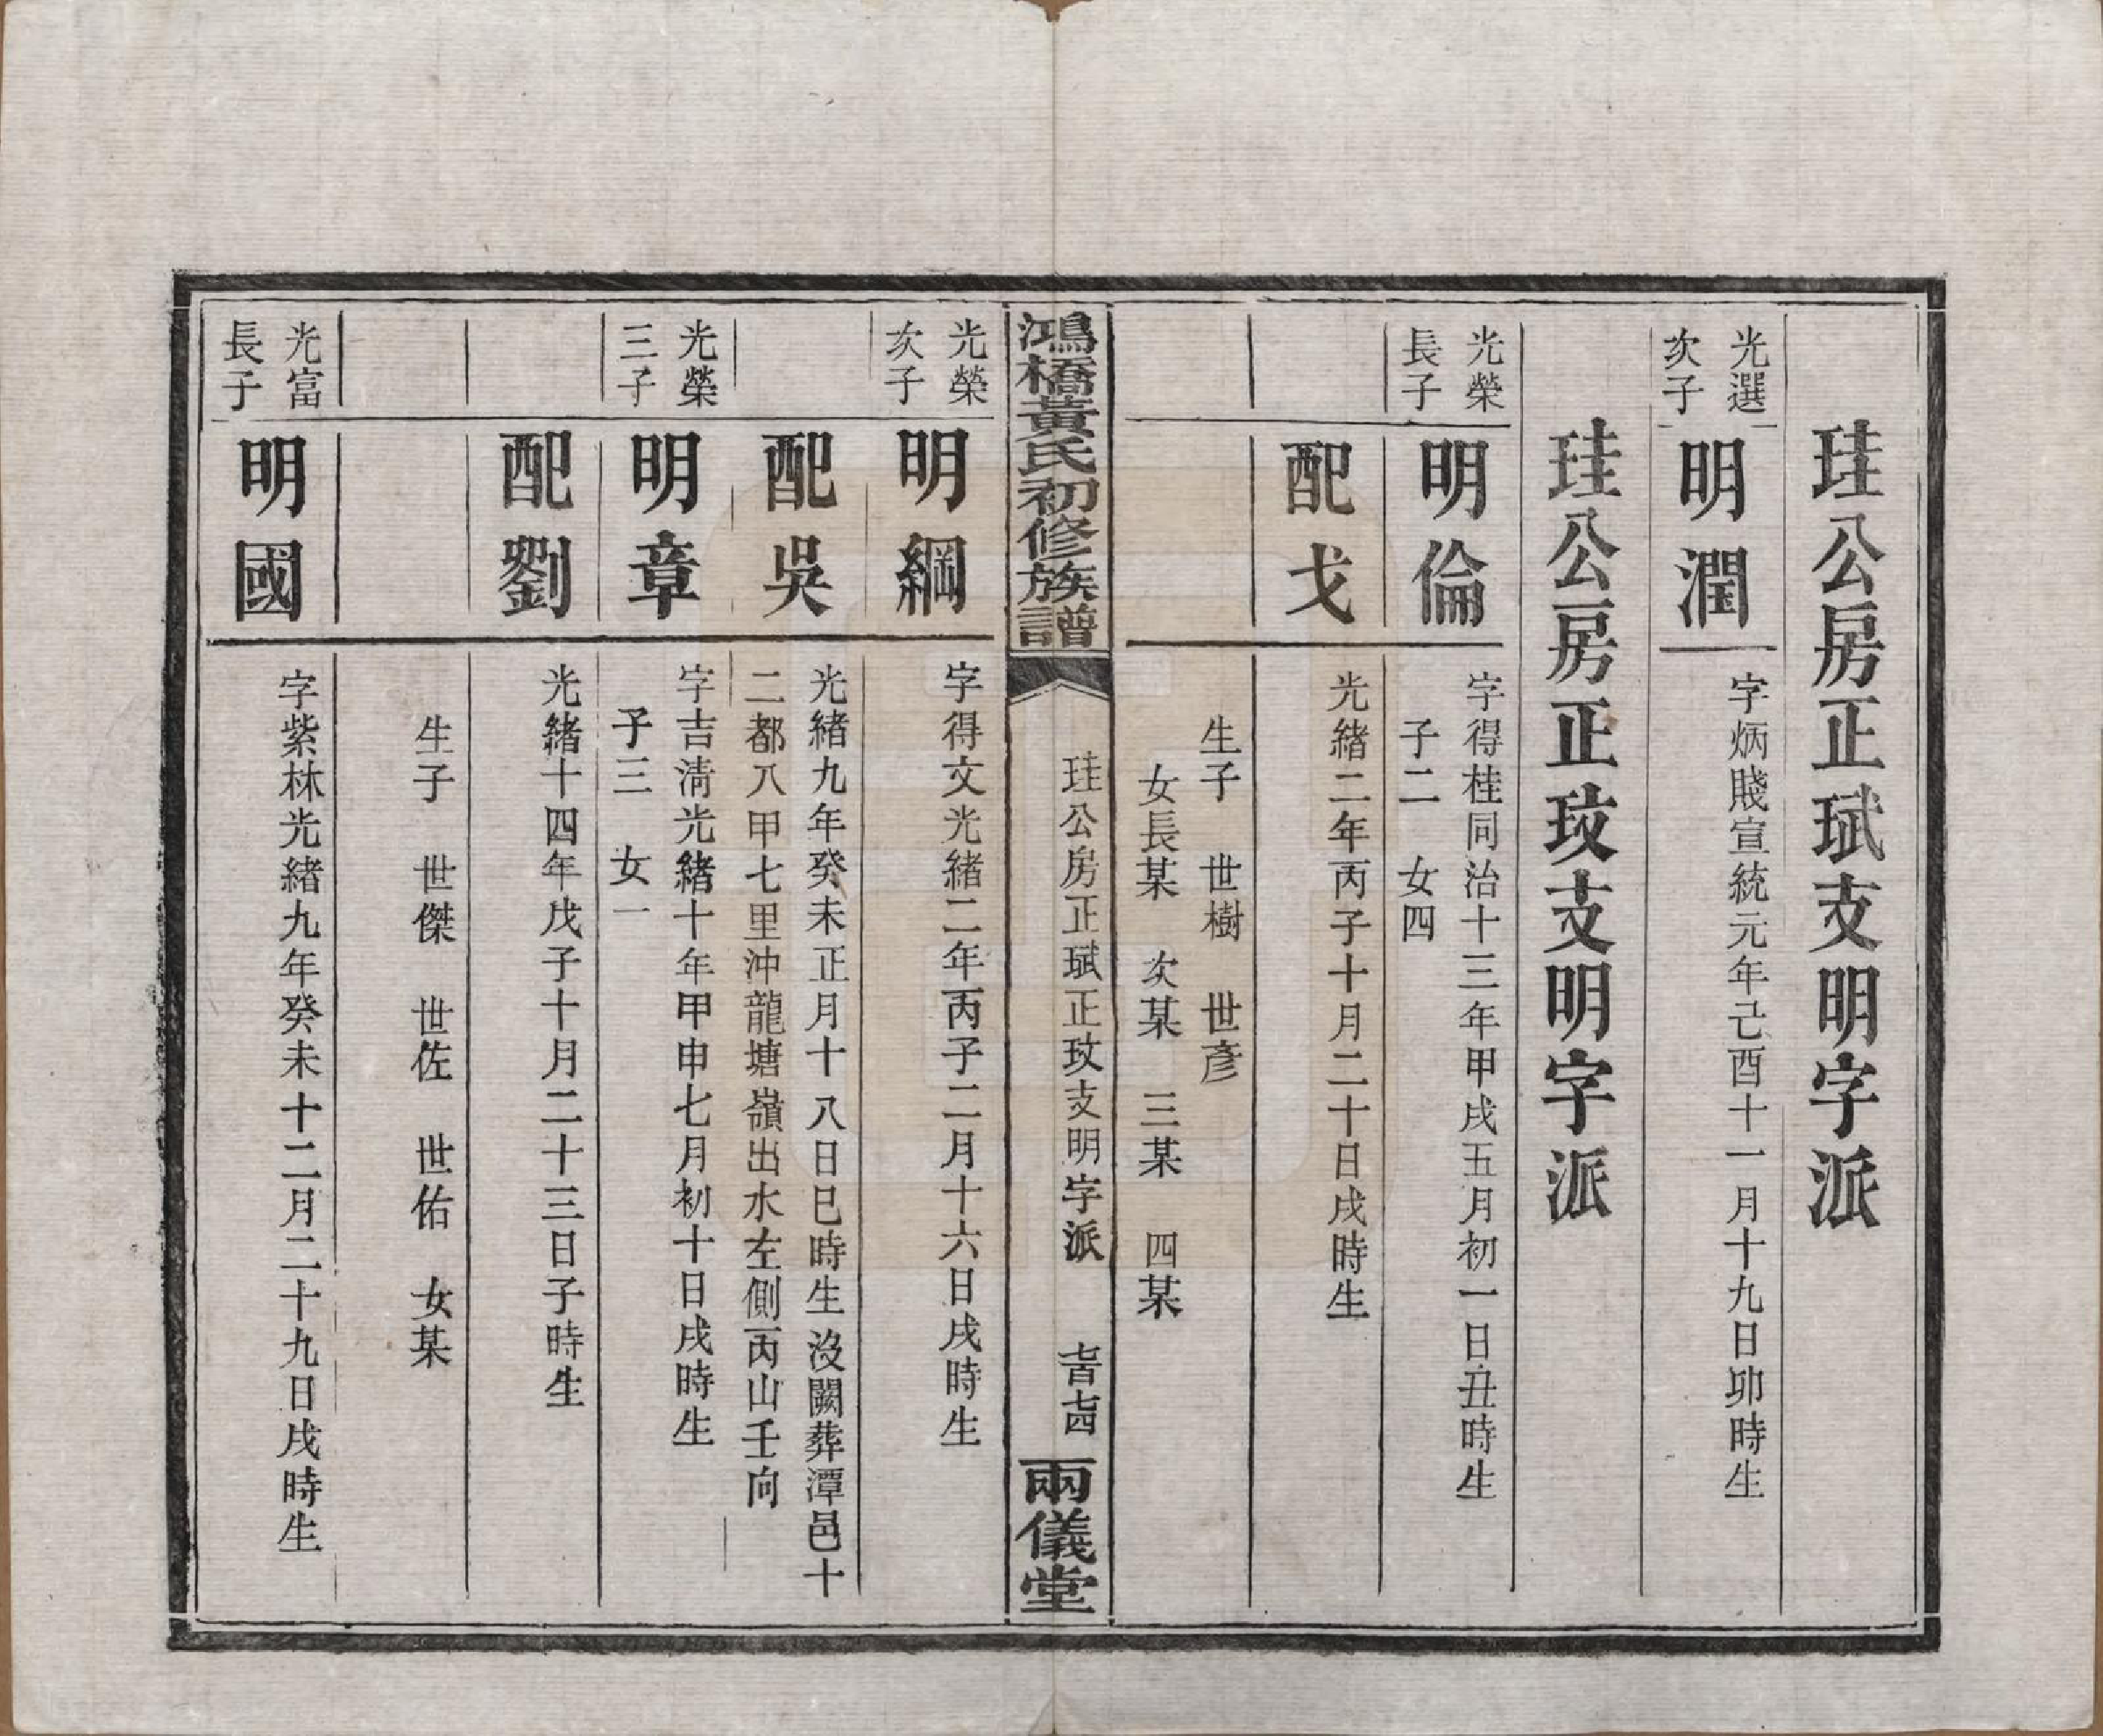 珪公房正珷支明字派
光選
次子
明潤
字炳賤宣統元年己酉十一月十九日卯時生
珪公房正玫支明字派
光榮
長子
明倫
字得桂同治十三年甲戌五月初一日丑時生
子二 女四
配戈
光緒二年丙子十月二十日戌時生
生子 世樹 世彦
女長某 次某 三某 四某
鴻橋黃氏初修族譜
珪公房正珷正玫支明字派
七百七四
兩儀堂
光榮
次子
明綱
字得文光緒二年丙子二月十六日戌時生
配吳
光緒九年癸未正月十八日巳時生沒闕葬潭邑十
二都八甲七里沖龍塘嶺出水左側丙山壬向
光榮
三子
明章
字吉淸光緒十年甲申七月初十日戌時生
子三 女一
配劉
光緒十四年戊子十月二十三日子時生
生子 世傑 世佐 世佑 女某
光富
長子
明國
字紫林光緒九年癸未十二月二十九日戌時生